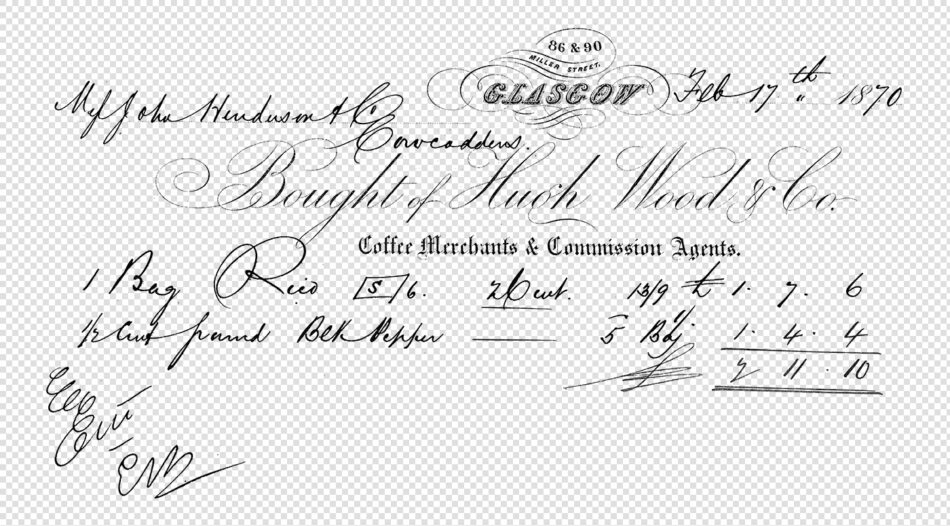 86 & 90
MILLER STREET.
GLASGOW
Feb 17th 1870
John Henderson & Co
Cowcaddens.
Bought of Hugh Wood & Co.
Coffee Merchants & Commission Agents.
1 Bag Rice 2 Cwt. 13/9 £ 1. 7. 6
1/2 Cwt ground Blk Pepper 5 1. 4. 4
2 11. 10